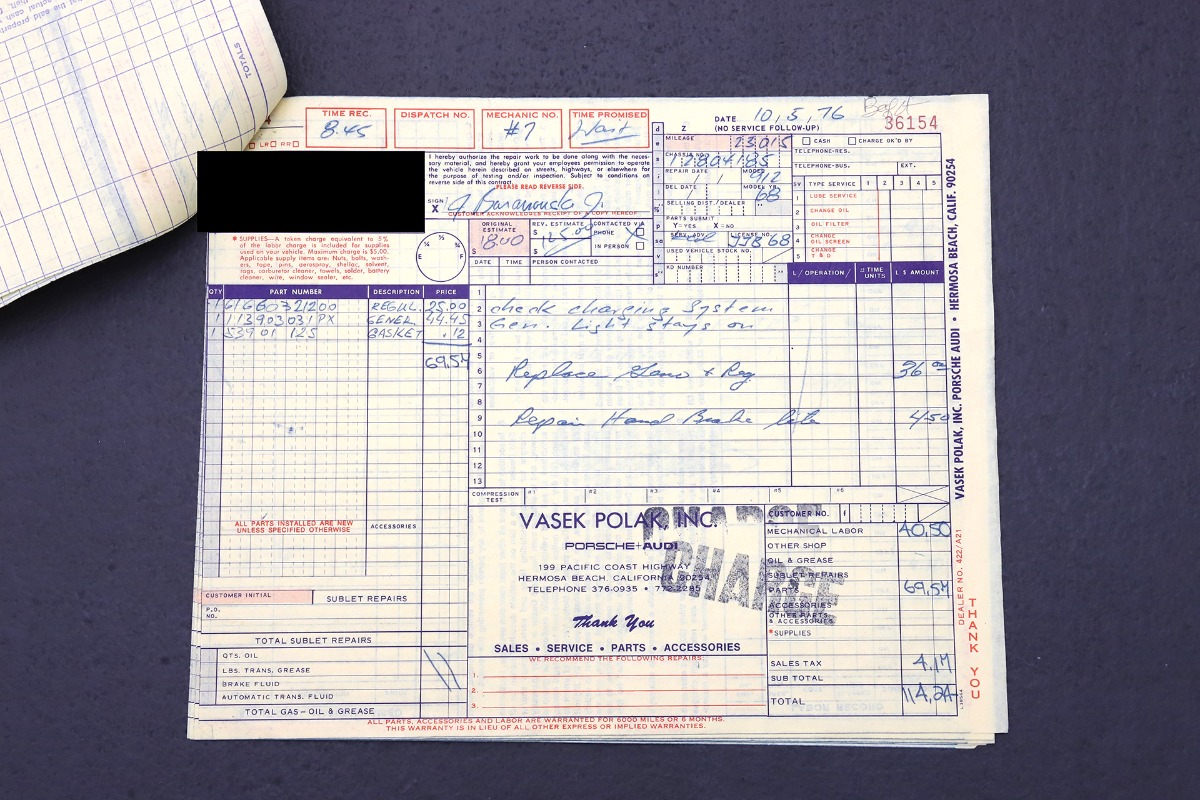 TOTALS
TIME REC.
8.45
DISPATCH NO.
MECHANIC NO.
#7
TIME PROMISED
Wait
DATE 10, 5, 76
(NO SERVICE FOLLOW-UP)
36154
LR RR
I hereby authorize the repair work to be done along with the neces-
sary material, and hereby grant your employees permission to operate
the vehicle herein described on streets, highways, or elsewhere for
the purpose of testing and/or inspection. Subject to conditions on
reverse side of this contract.
PLEASE READ REVERSE SIDE.
SIGN
X
CUSTOMER ACKNOWLEDGES RECEIPT OF COPY HEREOF
MILEAGE 23015
CHASSIS NO. 12804185
REPAIR DATE / / MODEL 912
DEL DATE MODEL YR. 68
SELLING DIST./DEALER
PARTS SUBMIT
Y=YES X=NO
SERV. ADV. LICENSE NO.
USED VEHICLE STOCK NO.
KD NUMBER
CASH CHARGE OK'D BY
TELEPHONE-RES.
TELEPHONE-BUS. EXT.
SV TYPE SERVICE 1 2 3 4 5
1 LUBE SERVICE
2 CHANGE OIL
3 OIL FILTER
4 CHANGE OIL SCREEN
5 CHANGE T & D
* SUPPLIES—A token charge equivalent to 5%
of the labor charge is included for supplies
used on your vehicle. Maximum charge is $5.00.
Applicable supply items are: Nuts, bolts, wash-
ers, tape, pins, aerospray, shellac, solvent,
rags, carburetor cleaner, towels, solder, battery
cleaner, wire, window sealer, etc.
ORIGINAL ESTIMATE
$ 18.00
REV. ESTIMATE
$ 125.00
CONTACTED VIA
PHONE
IN PERSON
DATE TIME PERSON CONTACTED
L/OPERATION/ TIME UNITS L $ AMOUNT
QTY PART NUMBER DESCRIPTION PRICE
1 61660321200 REGUL. 25.00
1 113903031PX GENER. 44.45
1 53901 125 GASKET .12
69,57
1
2 check charging System
3 Gen. Light stays on
4
5
6 Replace Gene + Reg 36 00
7
8
9 Repair Hand Brake lite 4/50
10
11
12
13
ALL PARTS INSTALLED ARE NEW
UNLESS SPECIFIED OTHERWISE
ACCESSORIES
COMPRESSION TEST #1 #2 #3 #4 #5 #6
CUSTOMER INITIAL SUBLET REPAIRS
P.O.
NO.
TOTAL SUBLET REPAIRS
QTS. OIL
LBS. TRANS. GREASE
BRAKE FLUID
AUTOMATIC TRANS. FLUID
TOTAL GAS-OIL & GREASE
VASEK POLAK, INC.
PORSCHE+AUDI
199 PACIFIC COAST HIGHWAY
HERMOSA BEACH, CALIFORNIA 90254
TELEPHONE 376-0935 • 772-2285
Thank You
SALES • SERVICE • PARTS • ACCESSORIES
CHARGE
CHARGE
WE RECOMMEND THE FOLLOWING REPAIRS:
1.
2.
3.
CUSTOMER NO.
MECHANICAL LABOR 40,50
OTHER SHOP
OIL & GREASE
SUBLET REPAIRS
PARTS 69,57
ACCESSORIES
OTHER PARTS & ACCESSORIES
*SUPPLIES
SALES TAX 4,17
SUB TOTAL
TOTAL 114,24
ALL PARTS, ACCESSORIES AND LABOR ARE WARRANTED FOR 6000 MILES OR 6 MONTHS.
THIS WARRANTY IS IN LIEU OF ALL OTHER EXPRESS OR IMPLIED WARRANTIES.
VASEK POLAK, INC. PORSCHE AUDI • HERMOSA BEACH, CALIF. 90254
DEALER NO. 422/A21
THANK YOU